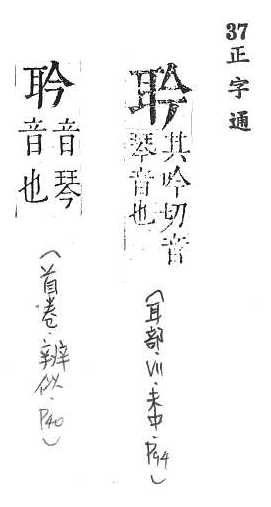 37正字通
聆
其吟切音
琴音也
(耳部.VII.未中.P94)
聆
音琴
音也
(首卷.辨似.P40)